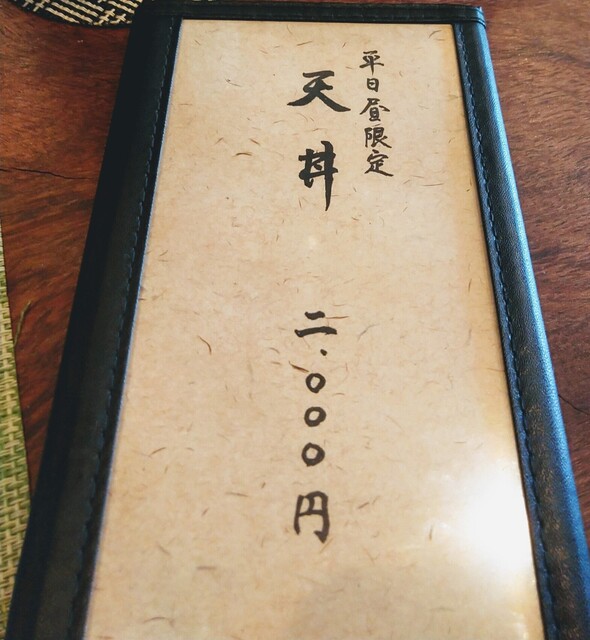 平日昼限定
天丼 二.〇〇〇円